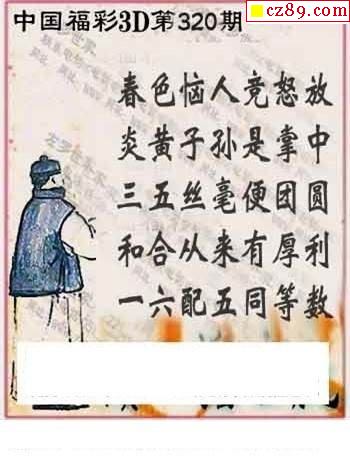 cz89.com
中国福彩3D第320期
春色恼人竞怒放
炎黄子孙是掌中
三五丝毫便团圆
和合从来有厚利
一六配五同等数